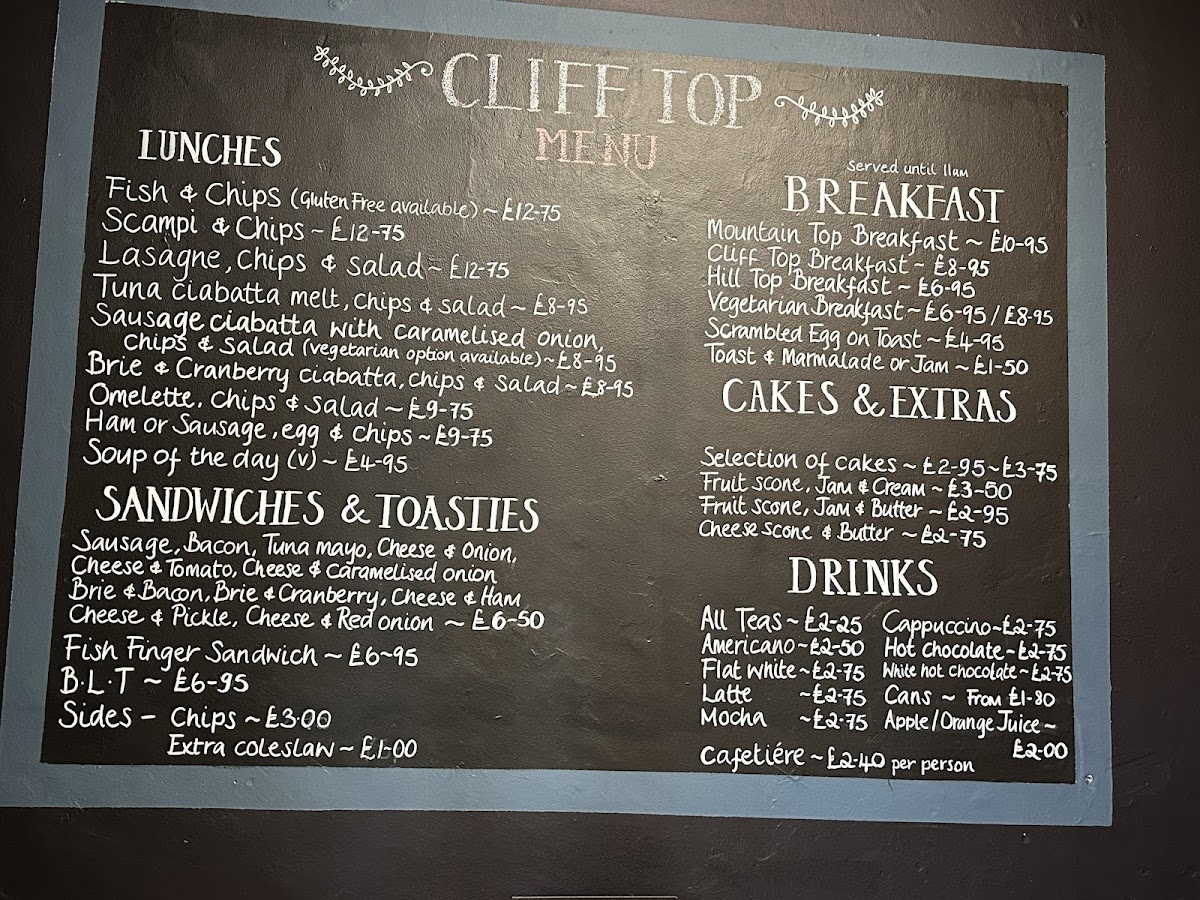 CLIFF TOP
MENU
LUNCHES
Fish & Chips (Gluten Free available) ~ £12-75
Scampi & Chips ~ £12-75
Lasagne, Chips & salad ~ £12-75
Tuna Ciabatta melt, chips & salad ~ £8-95
Sausage ciabatta with caramelised onion,
chips & salad (vegetarian option available) ~ £8-95
Brie & Cranberry ciabatta, chips & salad ~ £8-95
Omelette, chips & salad ~ £9-75
Ham or Sausage, egg & chips ~ £9-75
Soup of the day (v) ~ £4-95
SANDWICHES & TOASTIES
Sausage, Bacon, Tuna mayo, Cheese & Onion,
Cheese & Tomato, Cheese & Caramelised onion
Brie & Bacon, Brie & Cranberry, Cheese & Ham
Cheese & Pickle, Cheese & Red onion ~ £6-50
Fish Finger Sandwich ~ £6-95
B.L.T ~ £6-95
Sides - Chips ~ £3.00
Extra coleslaw ~ £1-00
Served until 11am
BREAKFAST
Mountain Top Breakfast ~ £10-95
Cliff Top Breakfast ~ £8-95
Hill Top Breakfast ~ £6-95
Vegetarian Breakfast ~ £6-95 / £8-95
Scrambled Egg on Toast ~ £4-95
Toast & Marmalade or Jam ~ £1-50
CAKES & EXTRAS
Selection of cakes ~ £2-95 ~ £3-75
Fruit scone, Jam & Cream ~ £3-50
Fruit scone, Jam & Butter ~ £2-95
Cheese scone & Butter ~ £2-75
DRINKS
All Teas ~ £2-25
Americano ~ £2-50
Flat white ~ £2-75
Latte ~ £2-75
Mocha ~ £2-75
Cafetiére ~ £2-40 per person
Cappuccino ~ £2-75
Hot chocolate ~ £2-75
White hot chocolate ~ £2-75
Cans ~ From £1-80
Apple / Orange Juice ~
£2-00